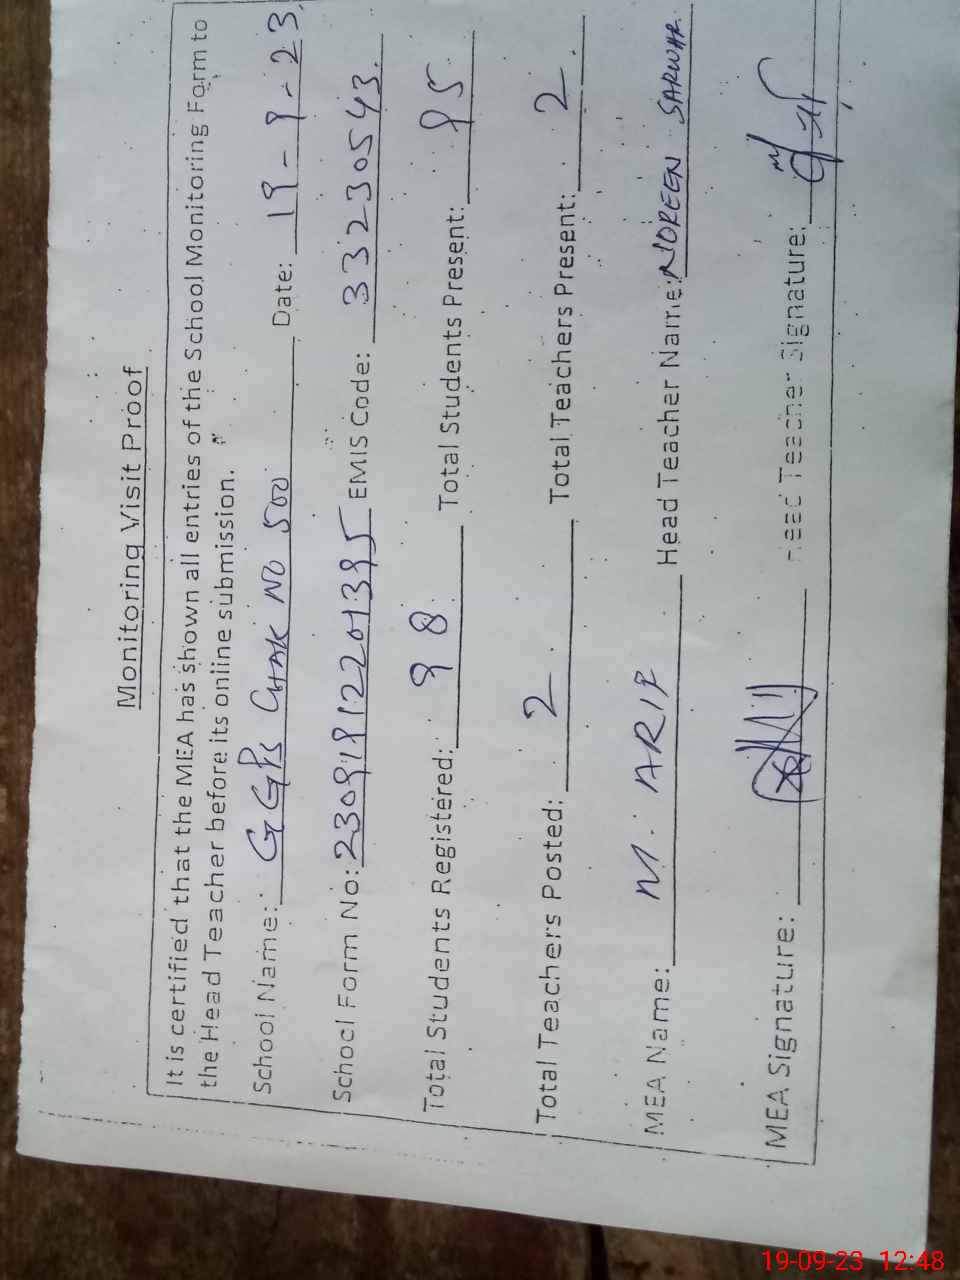 Monitoring Visit Proof
It is certified that the MEA has shown all entries of the School Monitoring Form to
the Head Teacher before its online submission.
School Name: GGPS CHAK NO 500 Date: 19-9-23
School Form No: 23091912201395 EMIS Code: 33230543
Total Students Registered: 98 Total Students Present: 95
Total Teachers Posted: 2 Total Teachers Present: 2
MEA Name: M. ARIF Head Teacher Name: NOREEN SARWAR
MEA Signature: Head Teacher Signature:
19-09-23 12:48